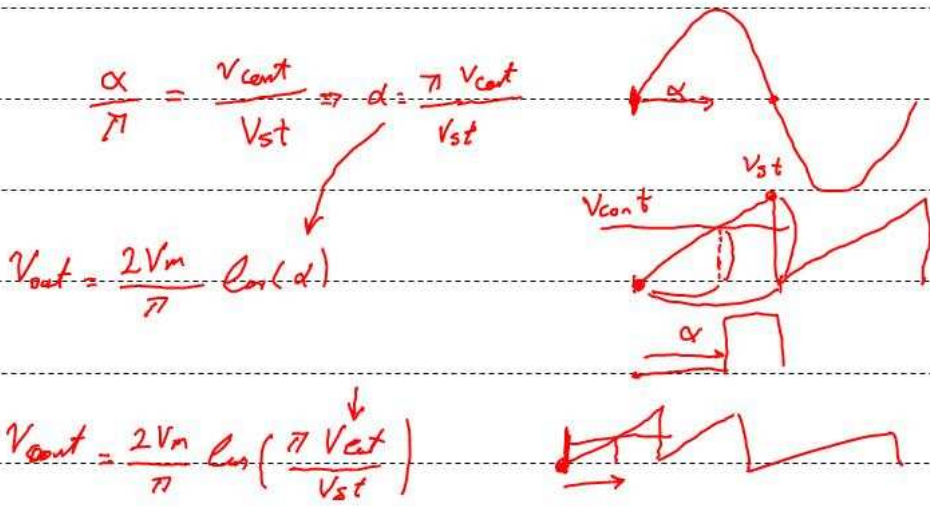 α/π = Vcont/Vst ⇒ α = π Vcont/Vst
α
Vst
Vcont
Vout = 2Vm/π Cos(α)
α
Vout = 2Vm/π Cos(π Vcnt/Vst)